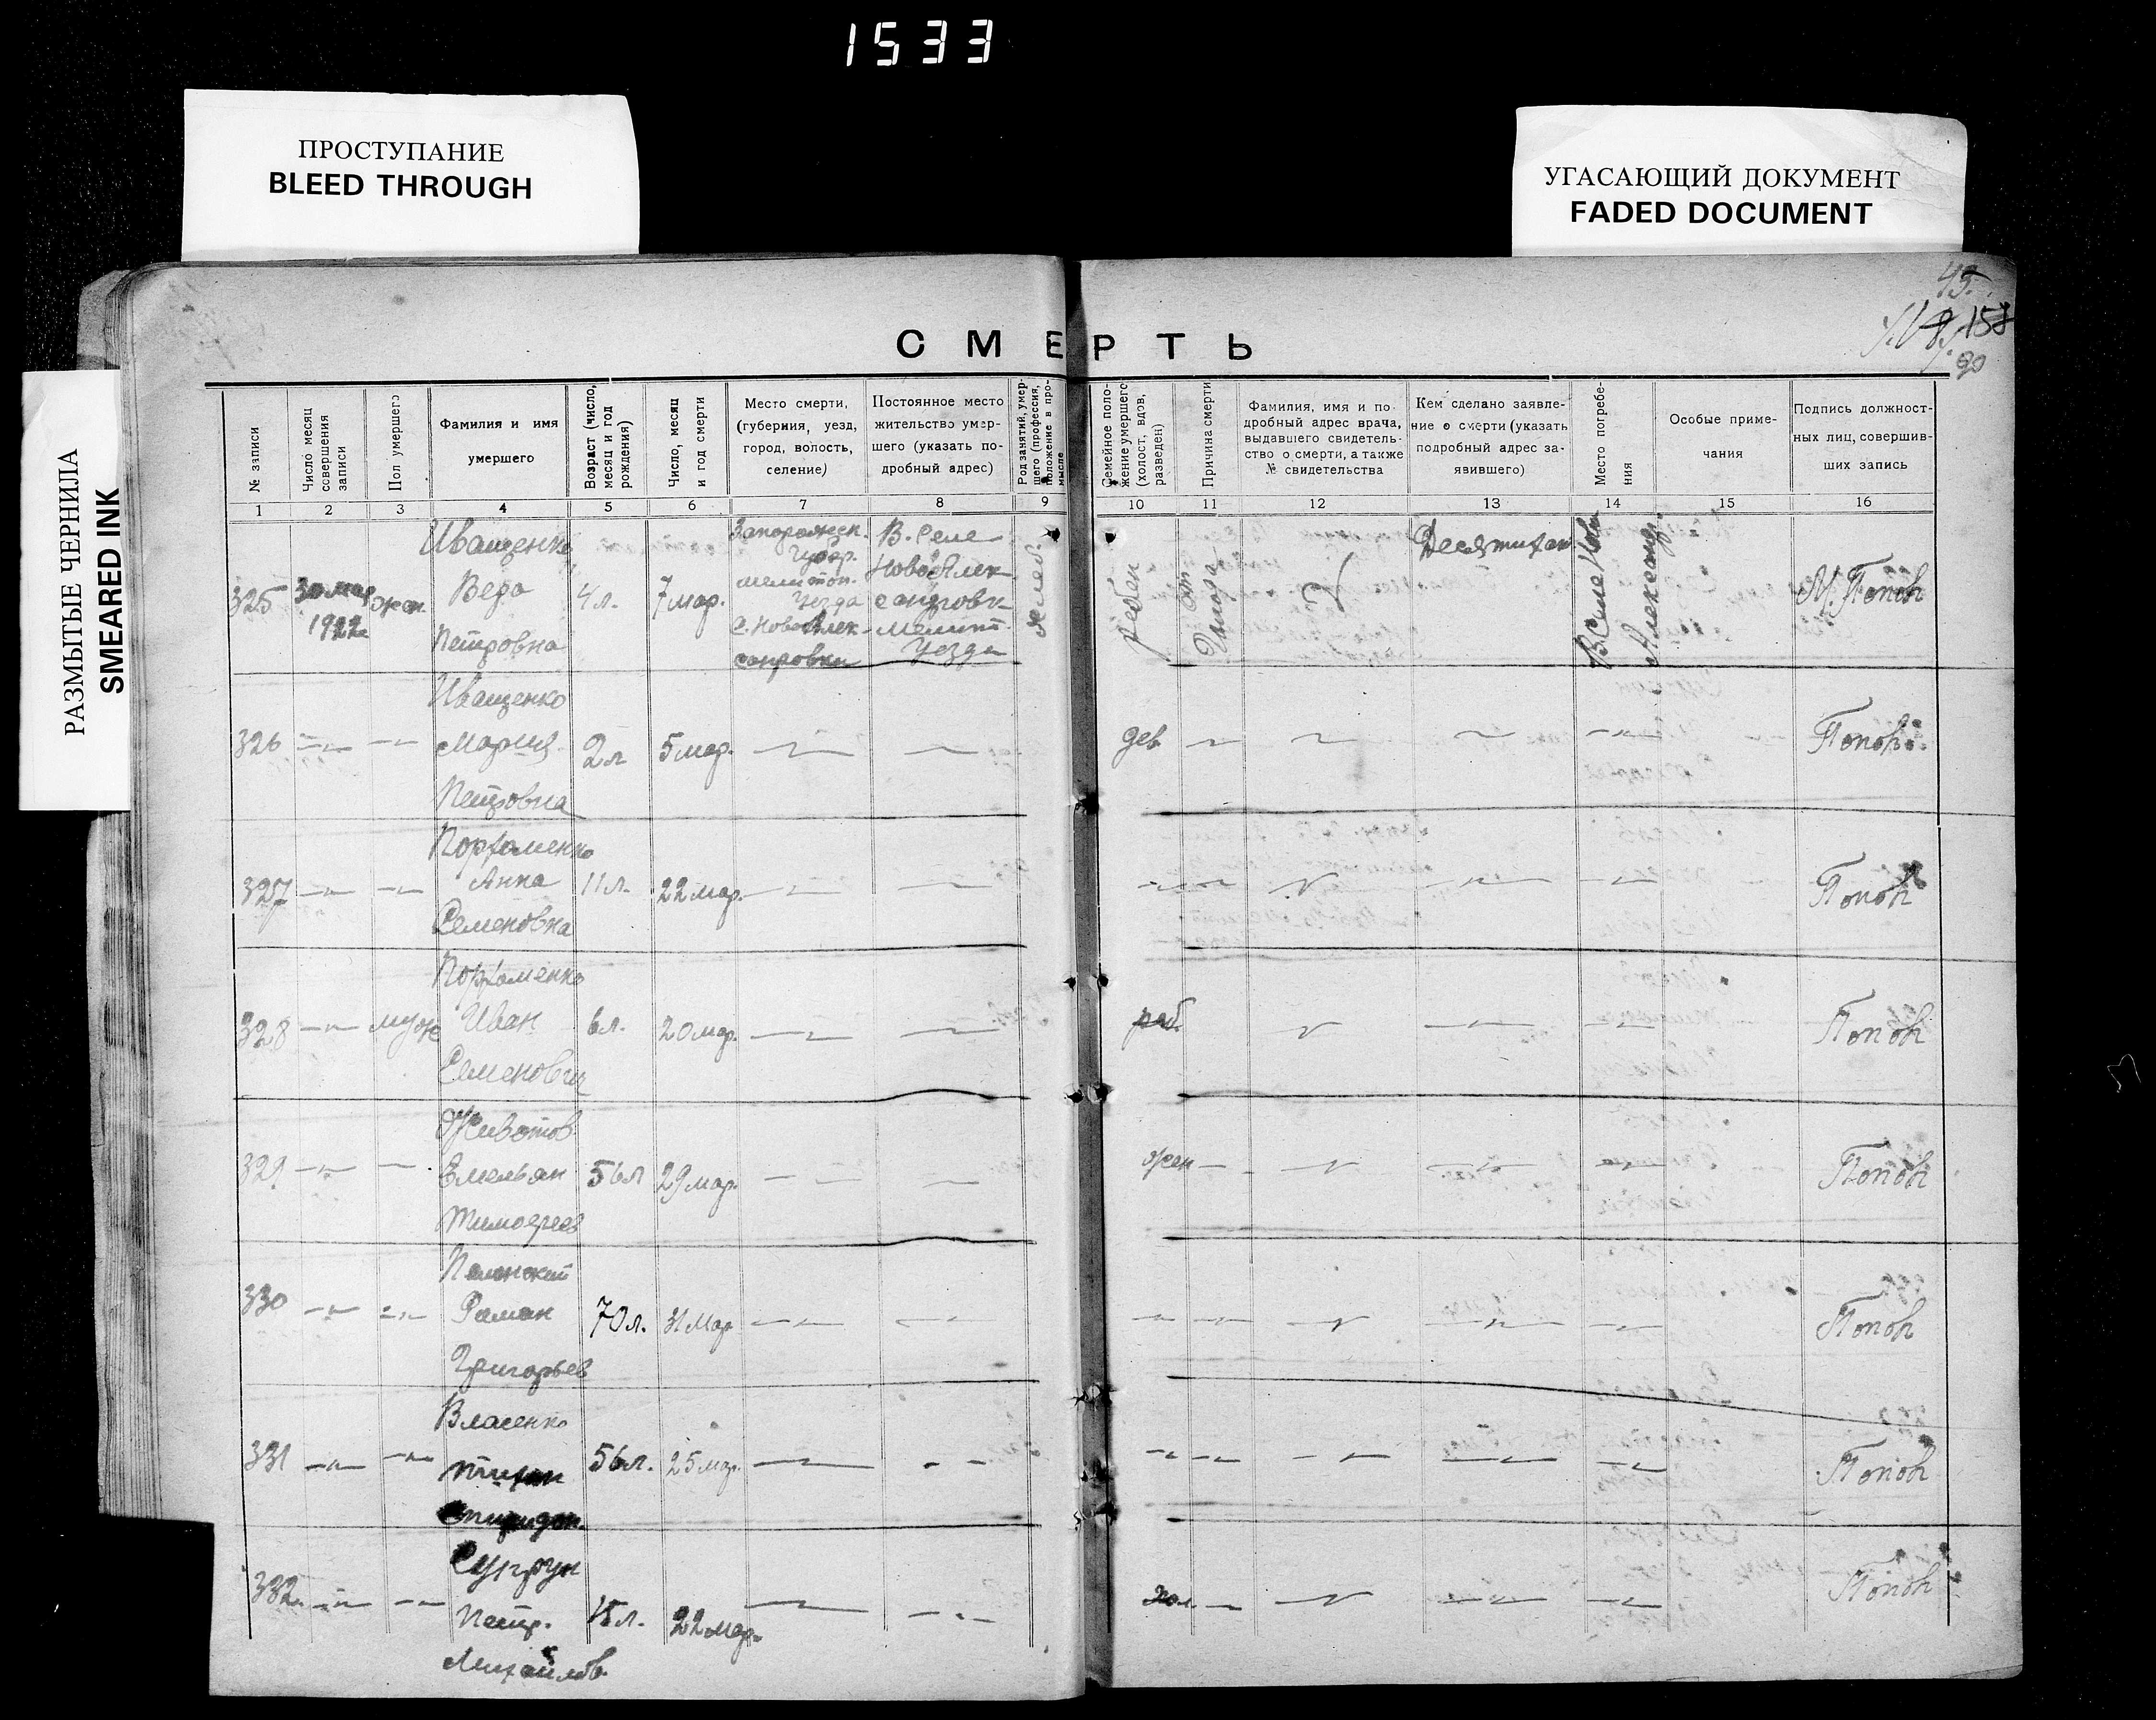 1533
ПРОСТУПАНИЕ
BLEED THROUGH
УГАСАЮЩИЙ ДОКУМЕНТ
FADED DOCUMENT
РАЗМЫТЫЕ ЧЕРНИЛА
SMEARED INK
43.
158
90
СМЕРТЬ
№ записи
Число месяц
совершения
записи
Пол умершего
Фамилия и имя
умершего
Возраст (число,
месяц и год
рождения)
Число, месяц
и год смерти
Место смерти,
(губерния, уезд,
город, волость,
селение)
Постоянное место
жительство умер-
шего (указать по-
дробный адрес)
Род занятий, умер-
шего (профессия,
положение в про-
мысле
Семейное поло-
жение умершего
(холост, вдов,
разведен)
Причина смерти
Фамилия, имя и по
дробный адрес врача,
выдавшего свидетель-
ство о смерти, а также
№ свидетельства
Кем сделано заявле-
ние о смерти (указать
подробный адрес за-
явившего)
Место погребе-
ния
Особые приме-
чания
Подпись должност-
ных лиц, совершив-
ших запись
1 2 3 4 5 6 7 8 9 10 11 12 13 14 15 16
325
30 мар
1922
жен
Иващенко
Вера
Петровна
4 л.
7 мар.
Запорожск.
губер.
мелитоп.
уезда
с. Ново Алек-
сандровки
В. Селе
Ново Алек
сандровк
Мелит.
уезда
хлеб.
ребен
от
В Селе Ново
Александ.
М. Попов
326
Иващенко
Мария
Петровна
2 л
5 мар.
дев
Попов
327
Анна
Семеновна
11 л.
22 мар.
Попов
328
муж
Иван
Семенович
6 л.
20 мар.
Попов
329
Животов
Емельян
Тимофеев
56 л
29 мар.
жен
Попов
330
Роман
Григорьев
70 л.
31 мар
Попов
331
Власенко
Тихон
Спиридон.
56 л.
25 мар.
Попов
332
Петр.
Михайлов
15 л.
22 мар.
хол
Попов